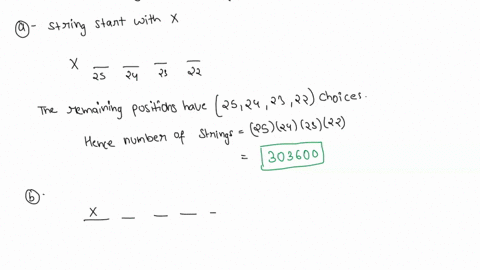 a - String start with X
X 25 24 23 22
The remaining positions have (25, 24, 23, 22) Choices.
Hence number of strings = (25)(24)(23)(22)
= 303600
b -
X _ _ _ _